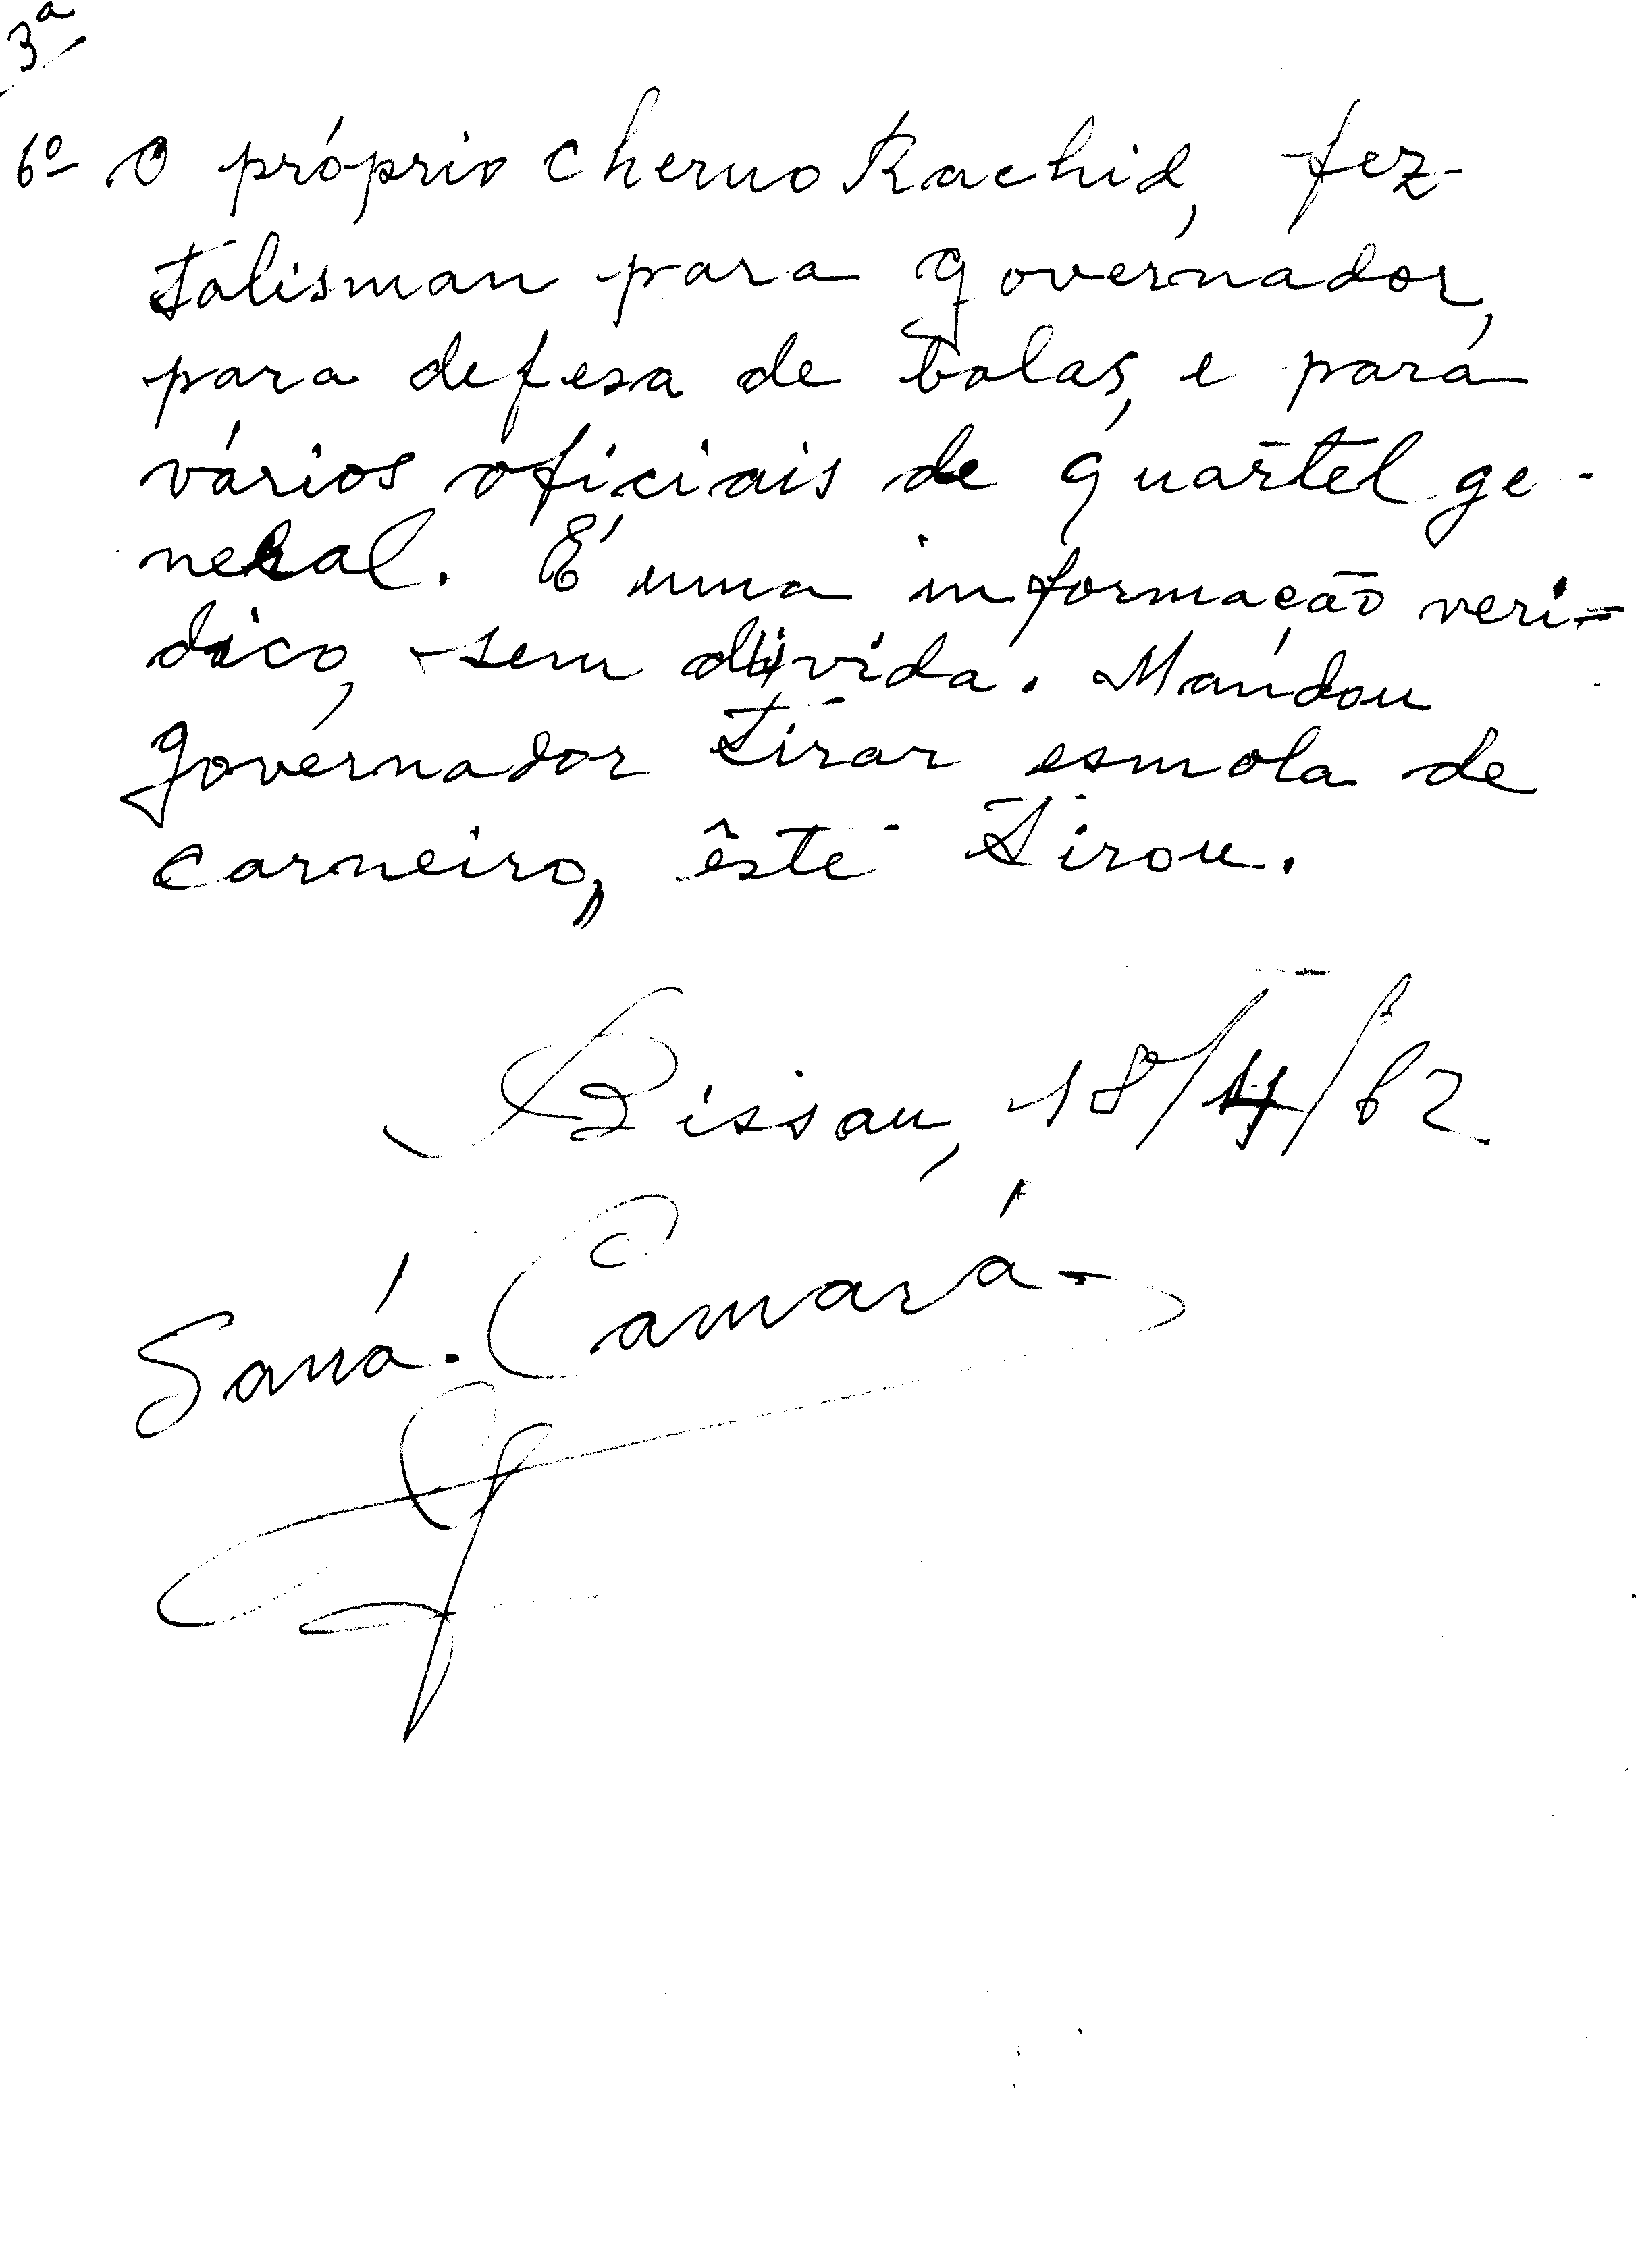 3ª
6º O próprio Cherno Rachid, fez
talisman para governador,
para defesa de balas, e para
vários oficiais de quartel ge-
neral. É uma informação veri-
dico, sem dúvida. Mandou
governador tirar esmola de
carneiro, êste tirou.
Bissau, 18/4/62
Saná. Camará